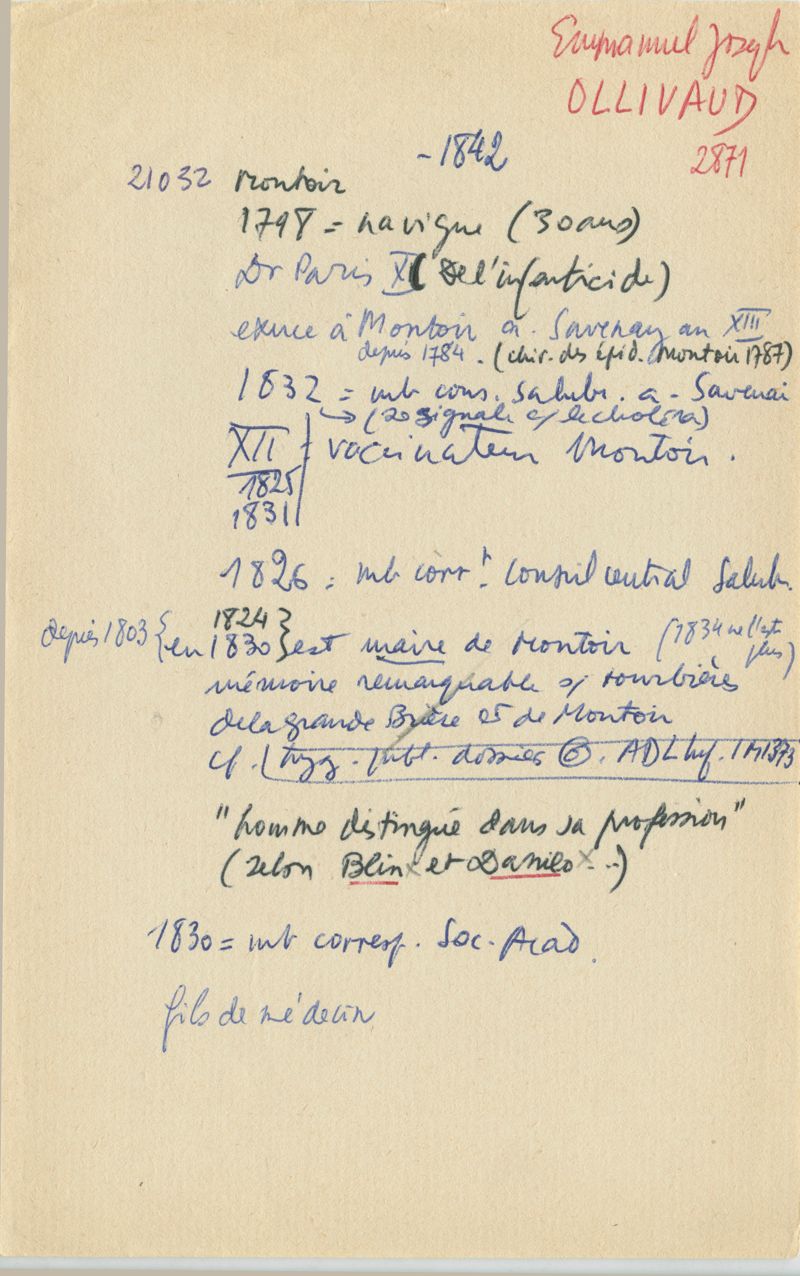 Emmanuel Joseph
OLLIVAUD
2871
- 1842
21032 Montoir
1798 = navigue (30 ans)
Dr Paris XI (De l'infanticide)
exerce à Montoir a. Savenay an XIII
depuis 1784. (chir. des épid. Montoir 1787)
1832 = mb cons. salubr. a - Savenai
→ (se signale c/ le choléra)
XII = vaccinateur Montoir.
1825
1831
1826 = mb corrt. Conseil central Salubr.
1824
depuis 1803 { en 1830 } est maire de Montoir (1834 ne l'est plus)
mémoire remarquable s/ tourbières
de la grande Brière et de Montoir
cf. (hyg. publ. dossier 6. ADL Inf. 1M1373
"homme distingué dans sa profession"
(selon Blin x et Danilo x ..)
1830 = mb corresp. Soc. Acad.
fils de médecin